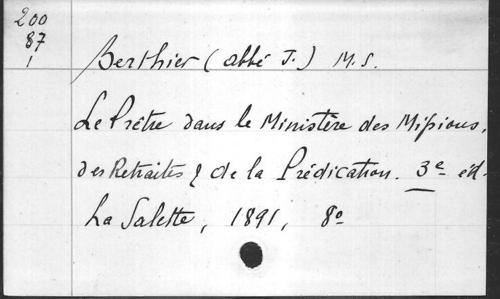 200
87
1
Berthier (abbé J.) M.S.
Le Prêtre dans le Ministère des Missions,
des Retraites & de la Prédication. 3e éd.
La Salette, 1891, 8o